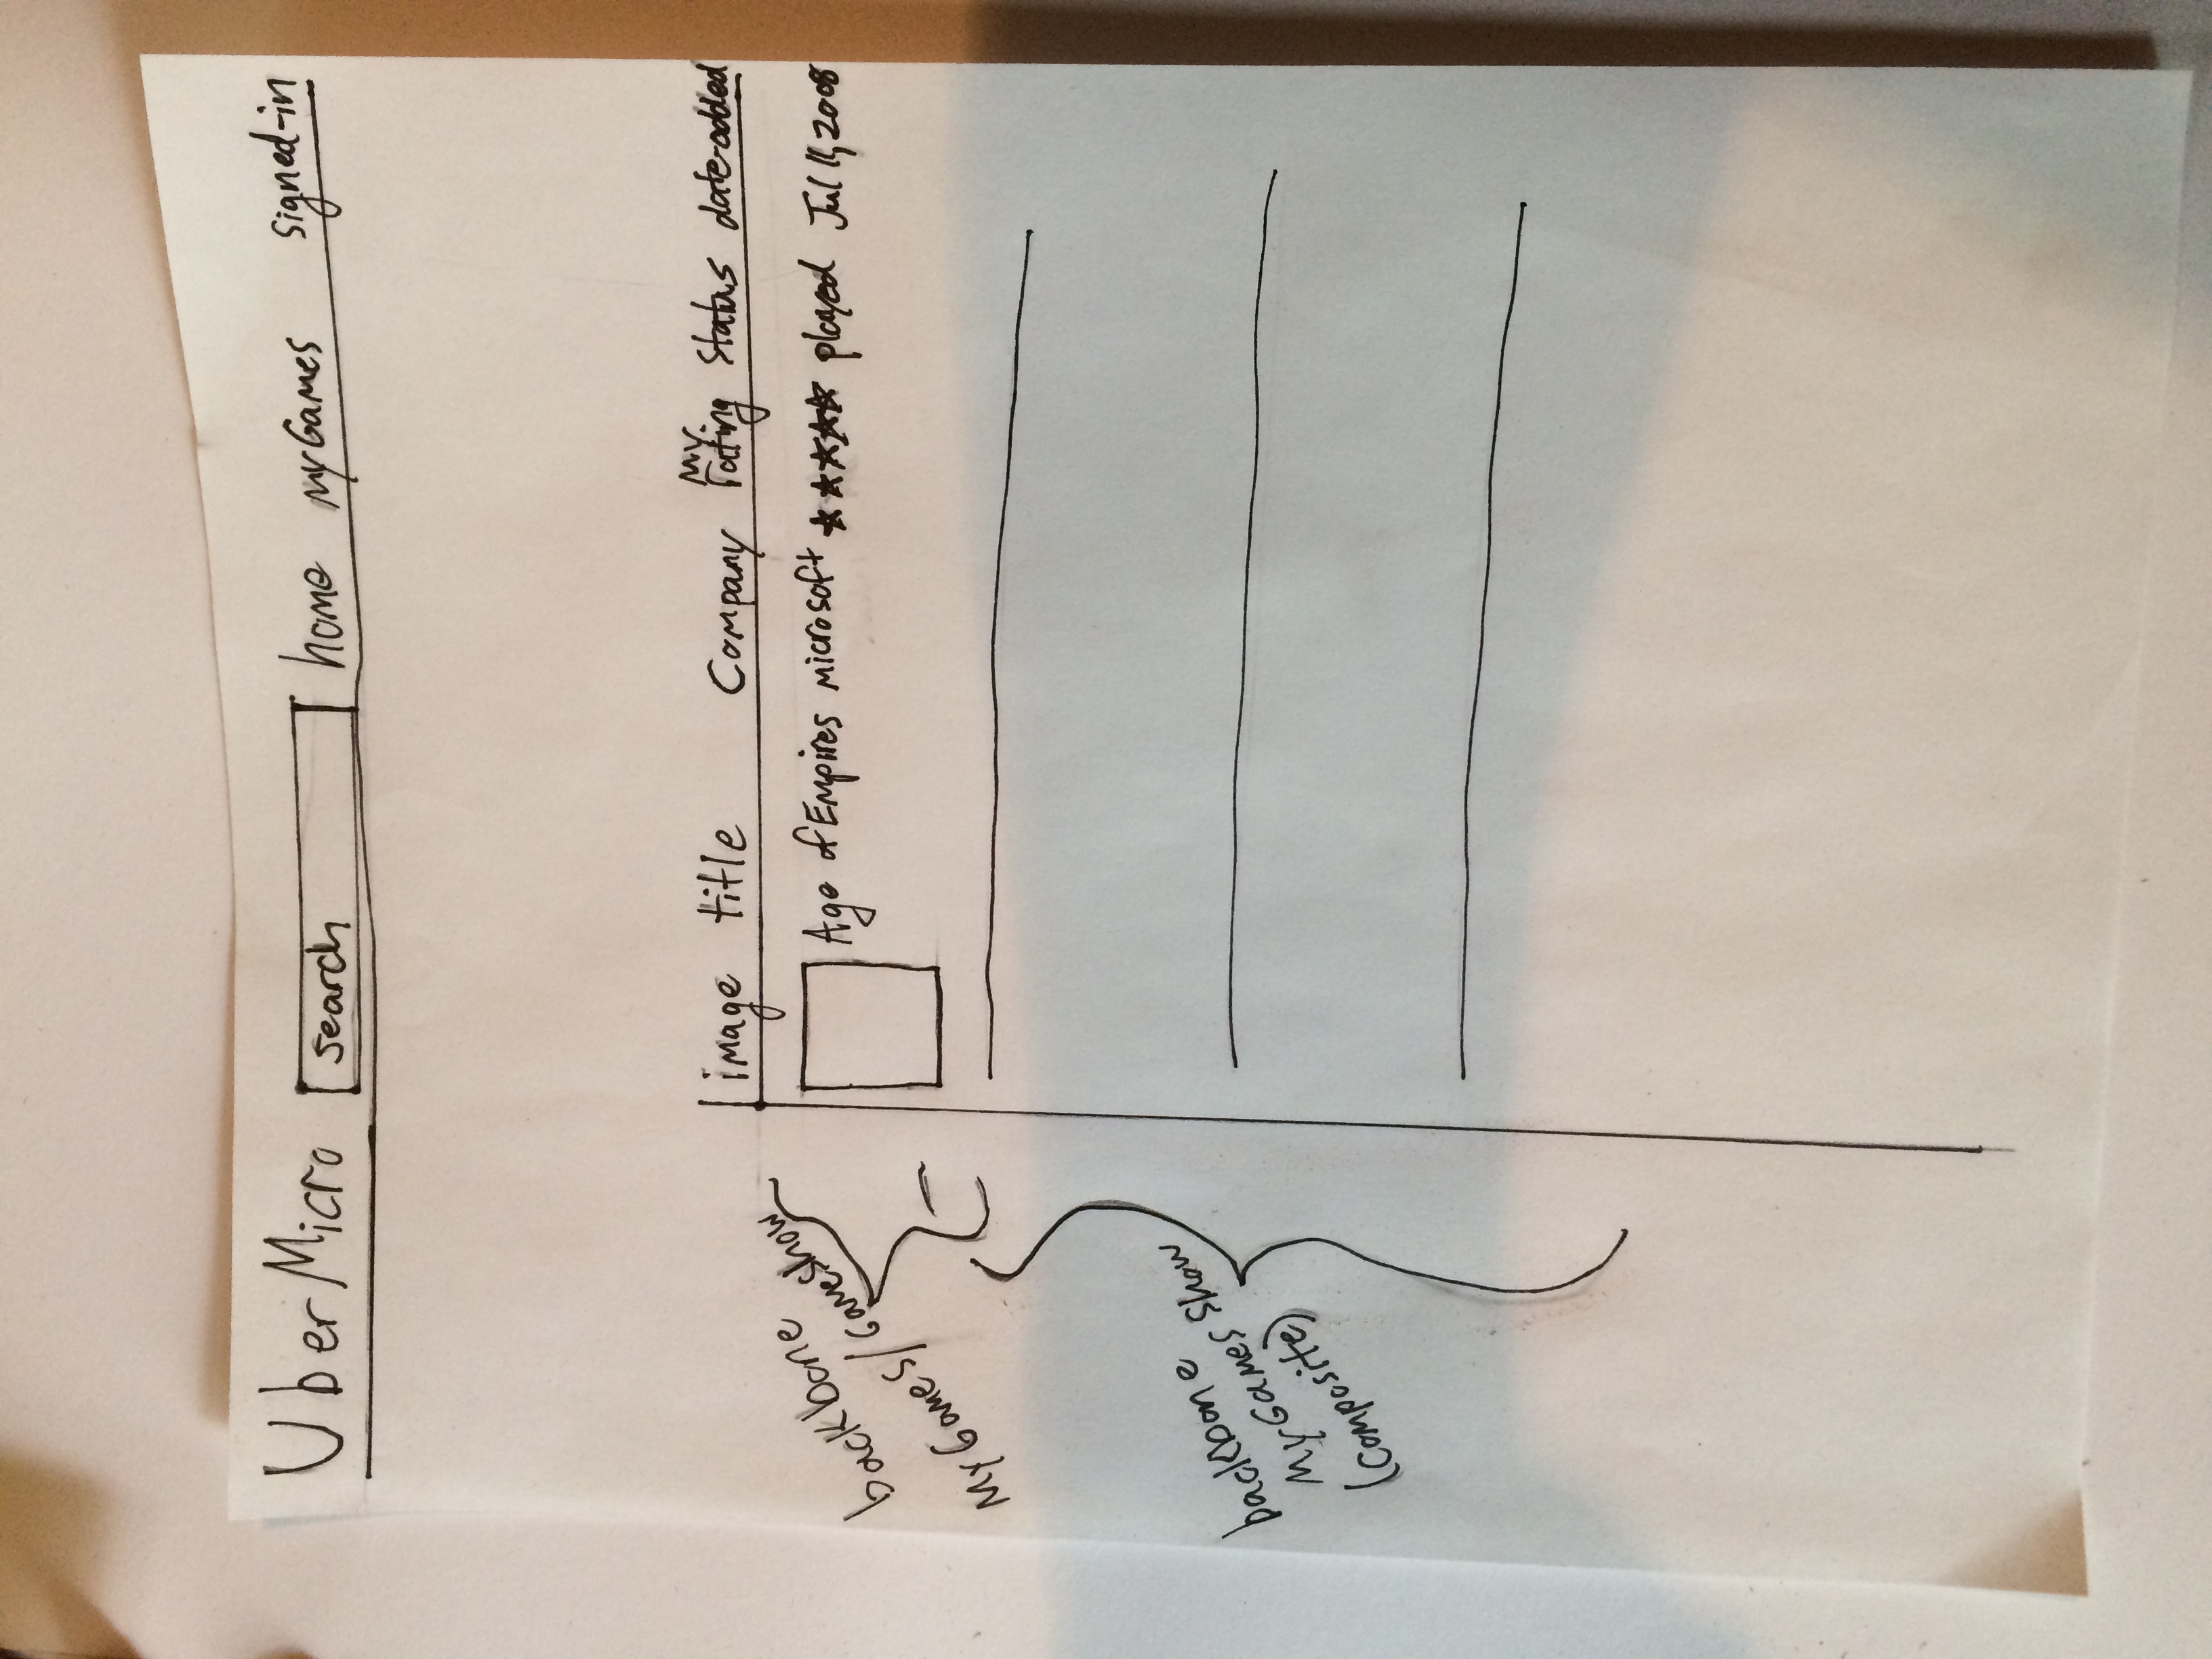 UberMicro search home myGames signed-in
image title Company my rating status date-added
Age of Empires microsoft ★★★★★ played Jul 11, 2008
backbone
MyGames/Gameshow
backbone
MyGames show
(composite)